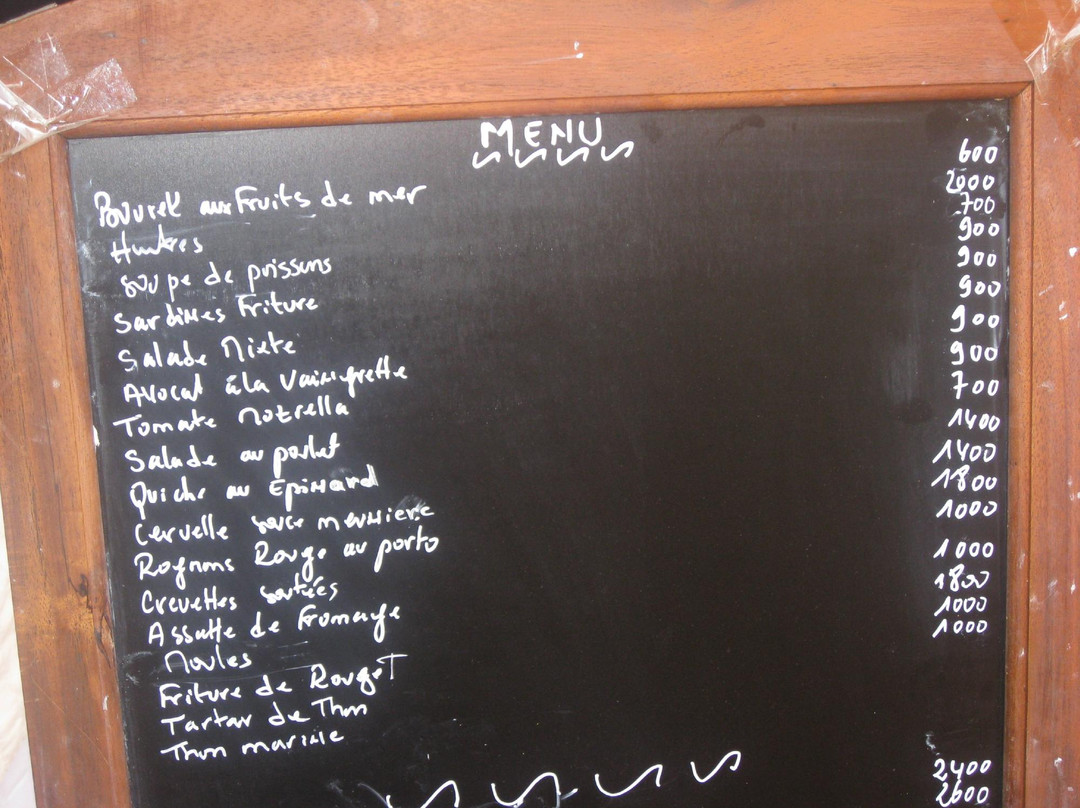 MENU
Bouurek aux Fruits de mer 600
Huitres 2000
Soupe de poissons 700
Sardines Friture 900
Salade Mixte 900
Avocat à la Vainegrette 900
Tomate Mozrella 900
Salade au poulet 900
Quiche au Epinard 700
Cervelle sauce meunniere 1400
Rognons Rouge au porto 1400
Crevettes sautées 1800
Assiette de Fromage 1000
Moules 1000
Friture de Rouget 1800
Tartar de Thon 1000
Thon marine 1000
2400
2600